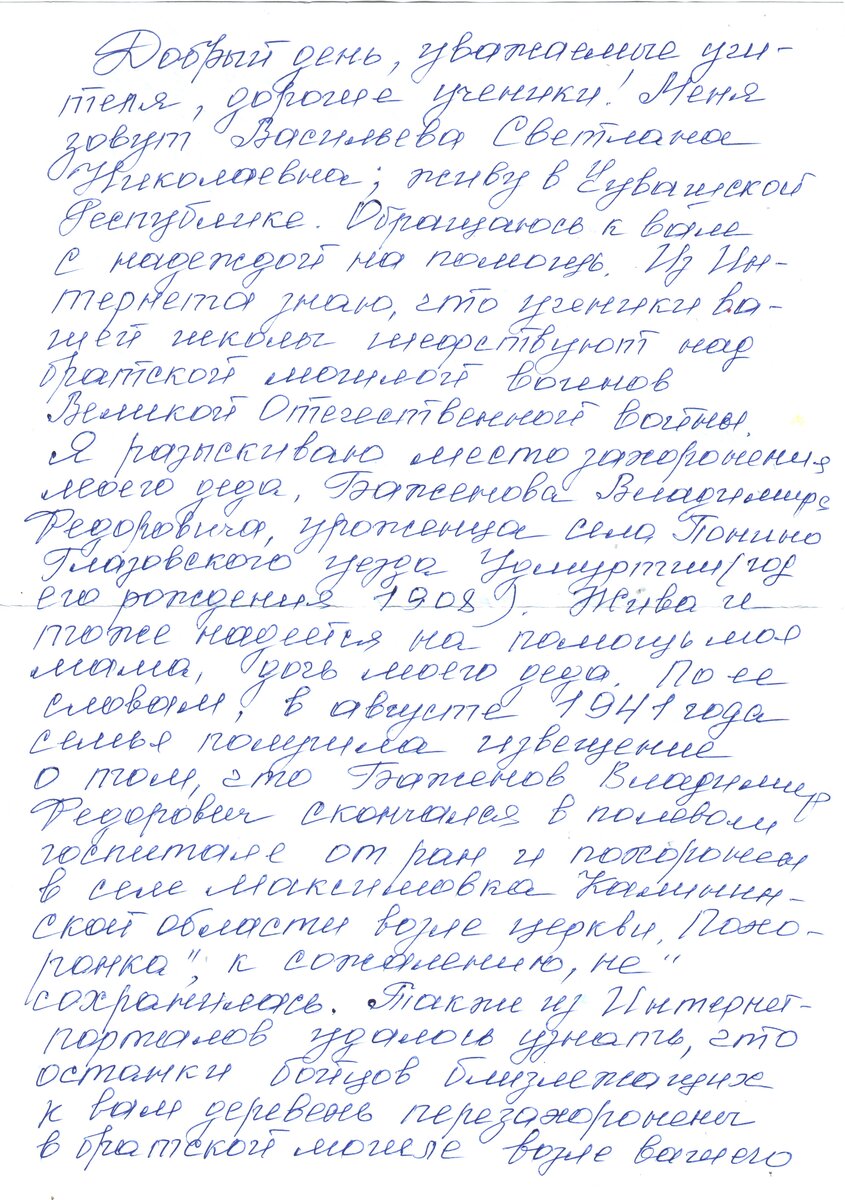 Добрый день, уважаемые учи-
теля, дорогие ученики! Меня
зовут Васильева Светлана
Николаевна; живу в Чувашской
Республике. Обращаюсь к вам
с надеждой на помощь. Из Ин-
тернета знаю, что ученики ва-
шей школы шефствуют над
братской могилой воинов
Великой Отечественной войны.
Я разыскиваю место захоронения
моего деда, Баженова Владимира
Федоровича, уроженца села Понино
Глазовского уезда Удмуртии (год
его рождения 1908). Жива и
тоже надеется на помощь моя
мама, дочь моего деда. По ее
словам, в августе 1941 года
семья получила извещение
о том, что Баженов Владимир
Федорович скончался в полевом
госпитале от ран и похоронен
в селе Максимовка Калинин-
ской области возле церкви. „Похо-
ронка", к сожалению, не
сохранилась. Также из Интернет-
порталов удалось узнать, что
останки бойцов близлежащих
к вам деревень перезахоронены
в братской могиле возле вашего